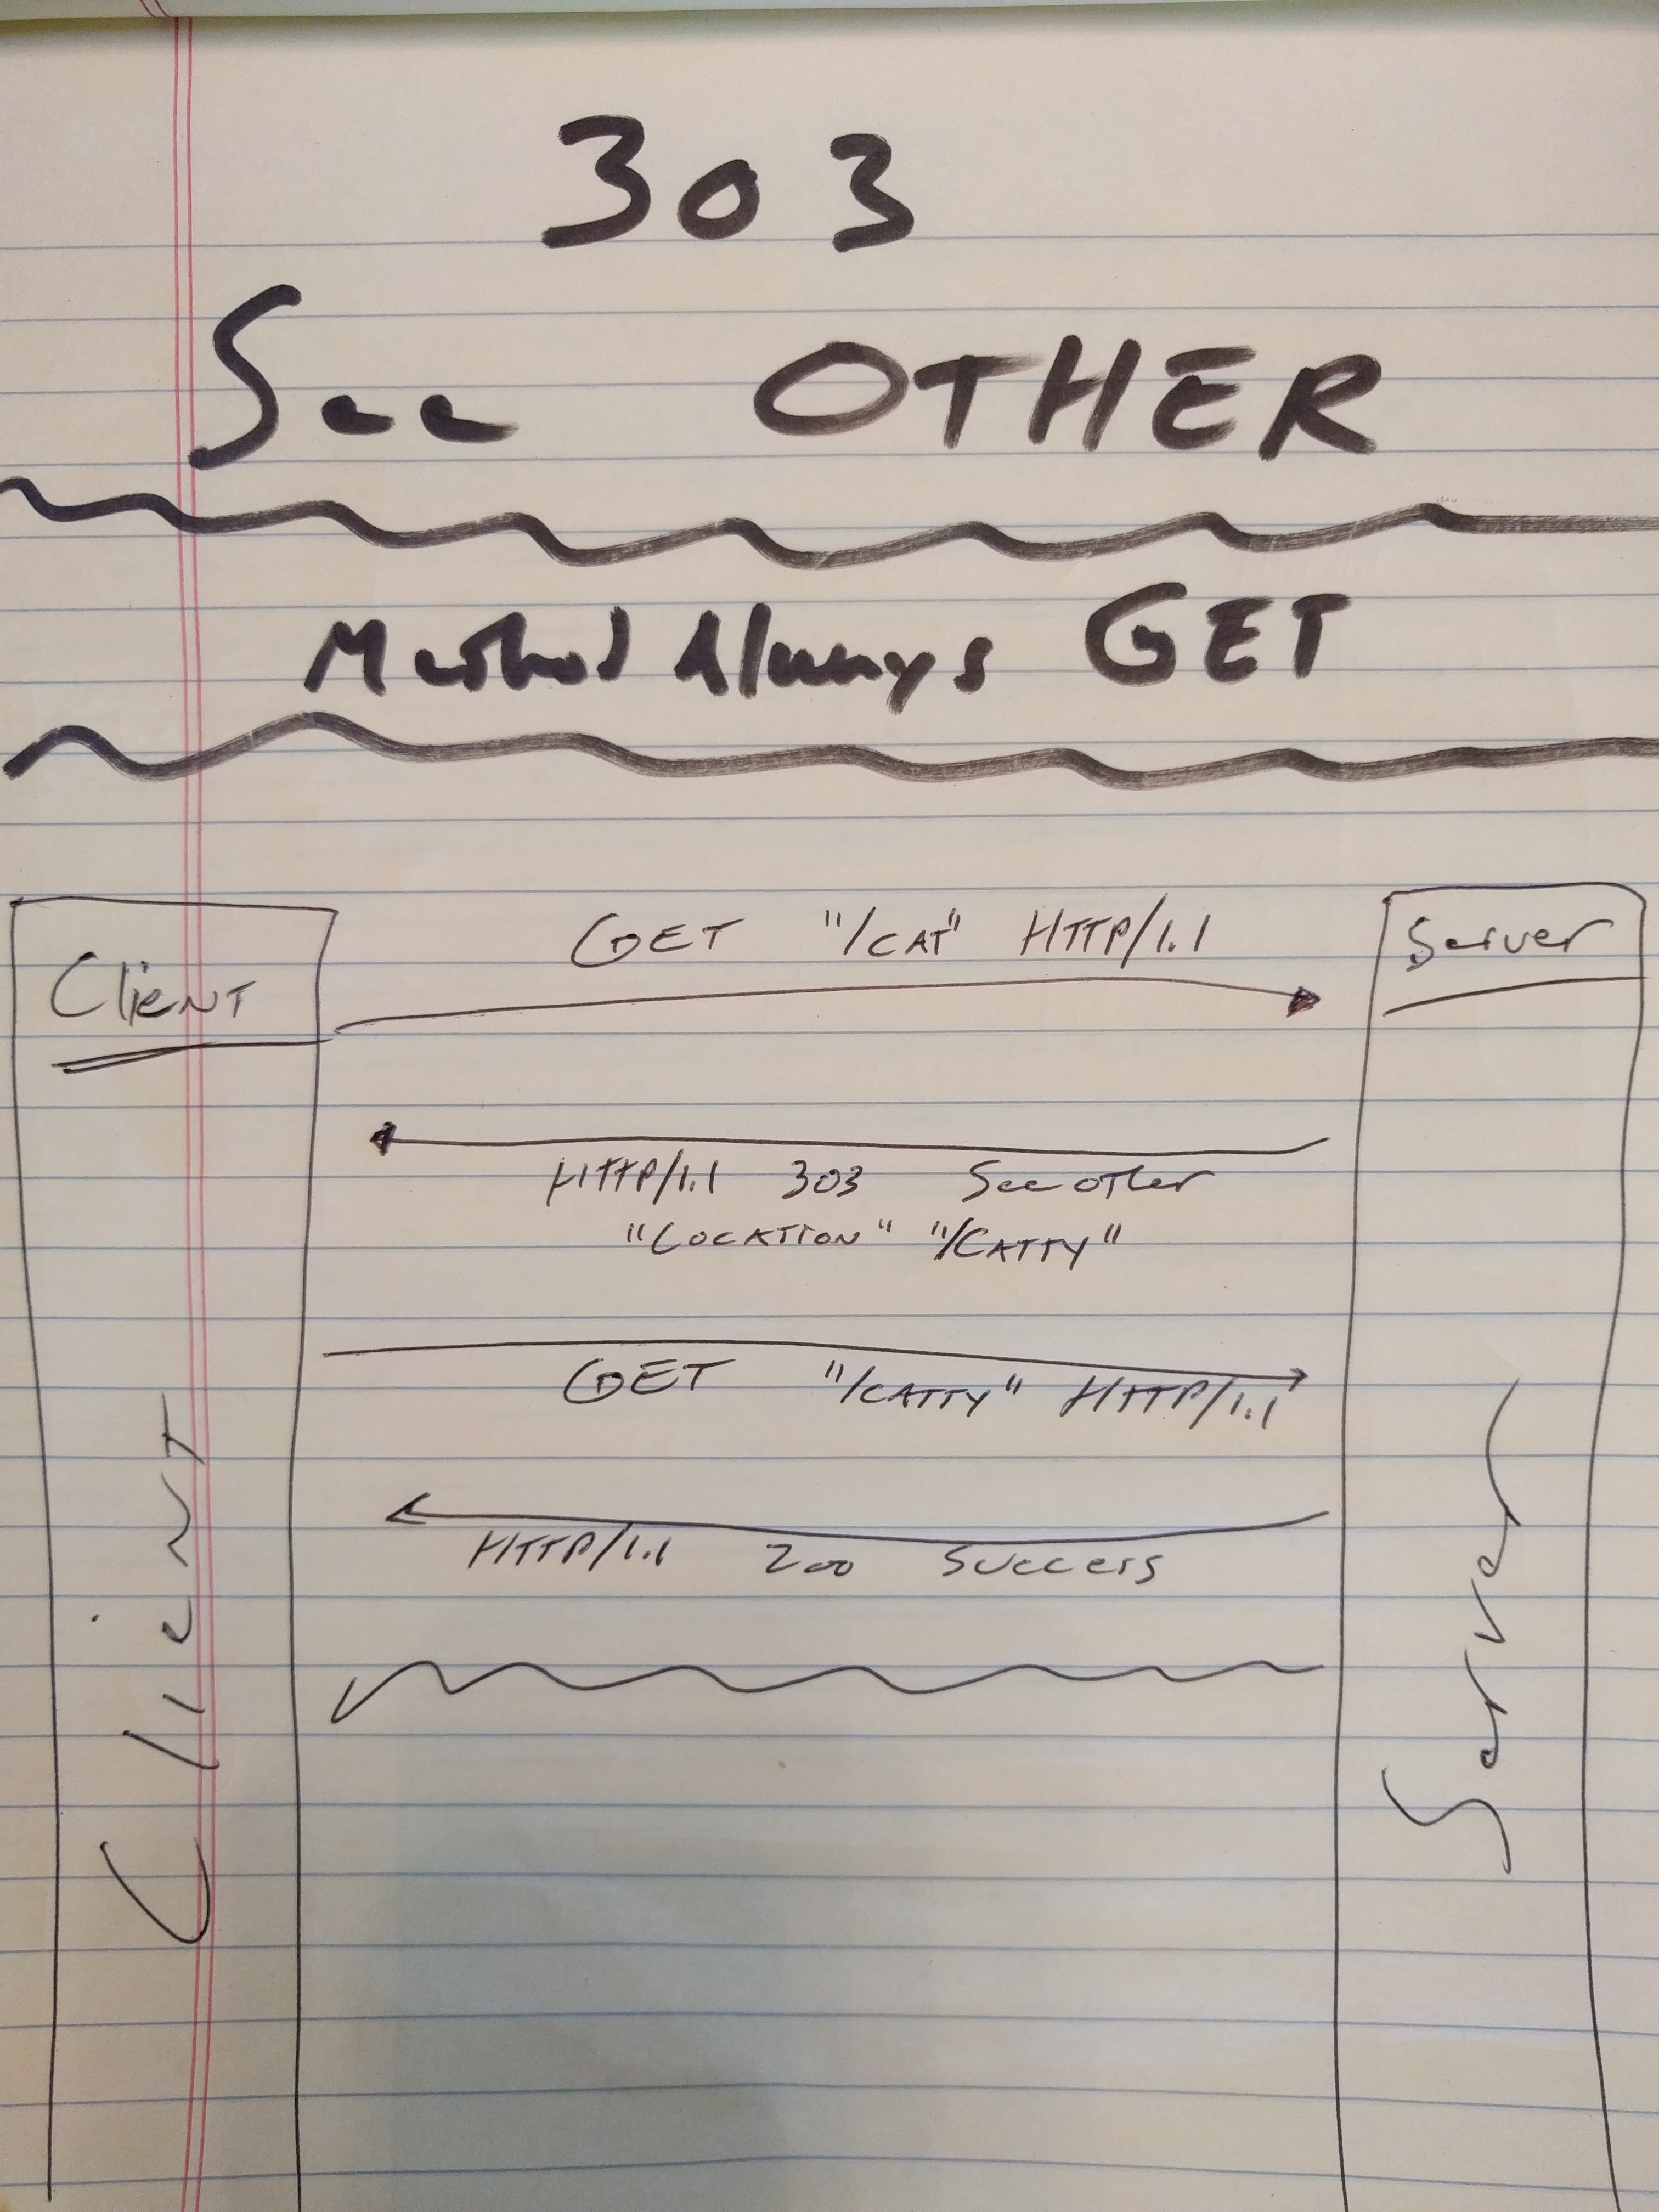 303
See OTHER
Method Always GET
Client
GET "/CAT" HTTP/1.1
Server
HTTP/1.1 303 See other
"LOCATION" "/CATTY"
GET "/CATTY" HTTP/1.1
HTTP/1.1 200 Success
Client
Server